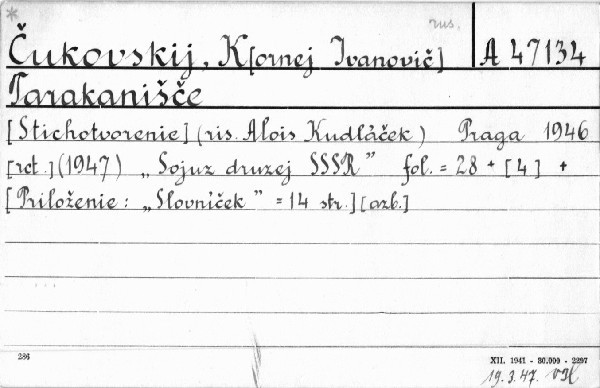 rus.
Čukovskij, K[ornej Ivanovič] A 47134
Tarakanišče
[Stichotvorenie] (ris. Alois Kudláček) Praga 1946
[rct.] (1947) „Sojuz druzej SSSR” fol. = 28 + [4] +
[Priloženie: „Slovníček” = 14 str.] [azb.]
286
XII. 1941 - 80.000 - 2297
19.3.47.